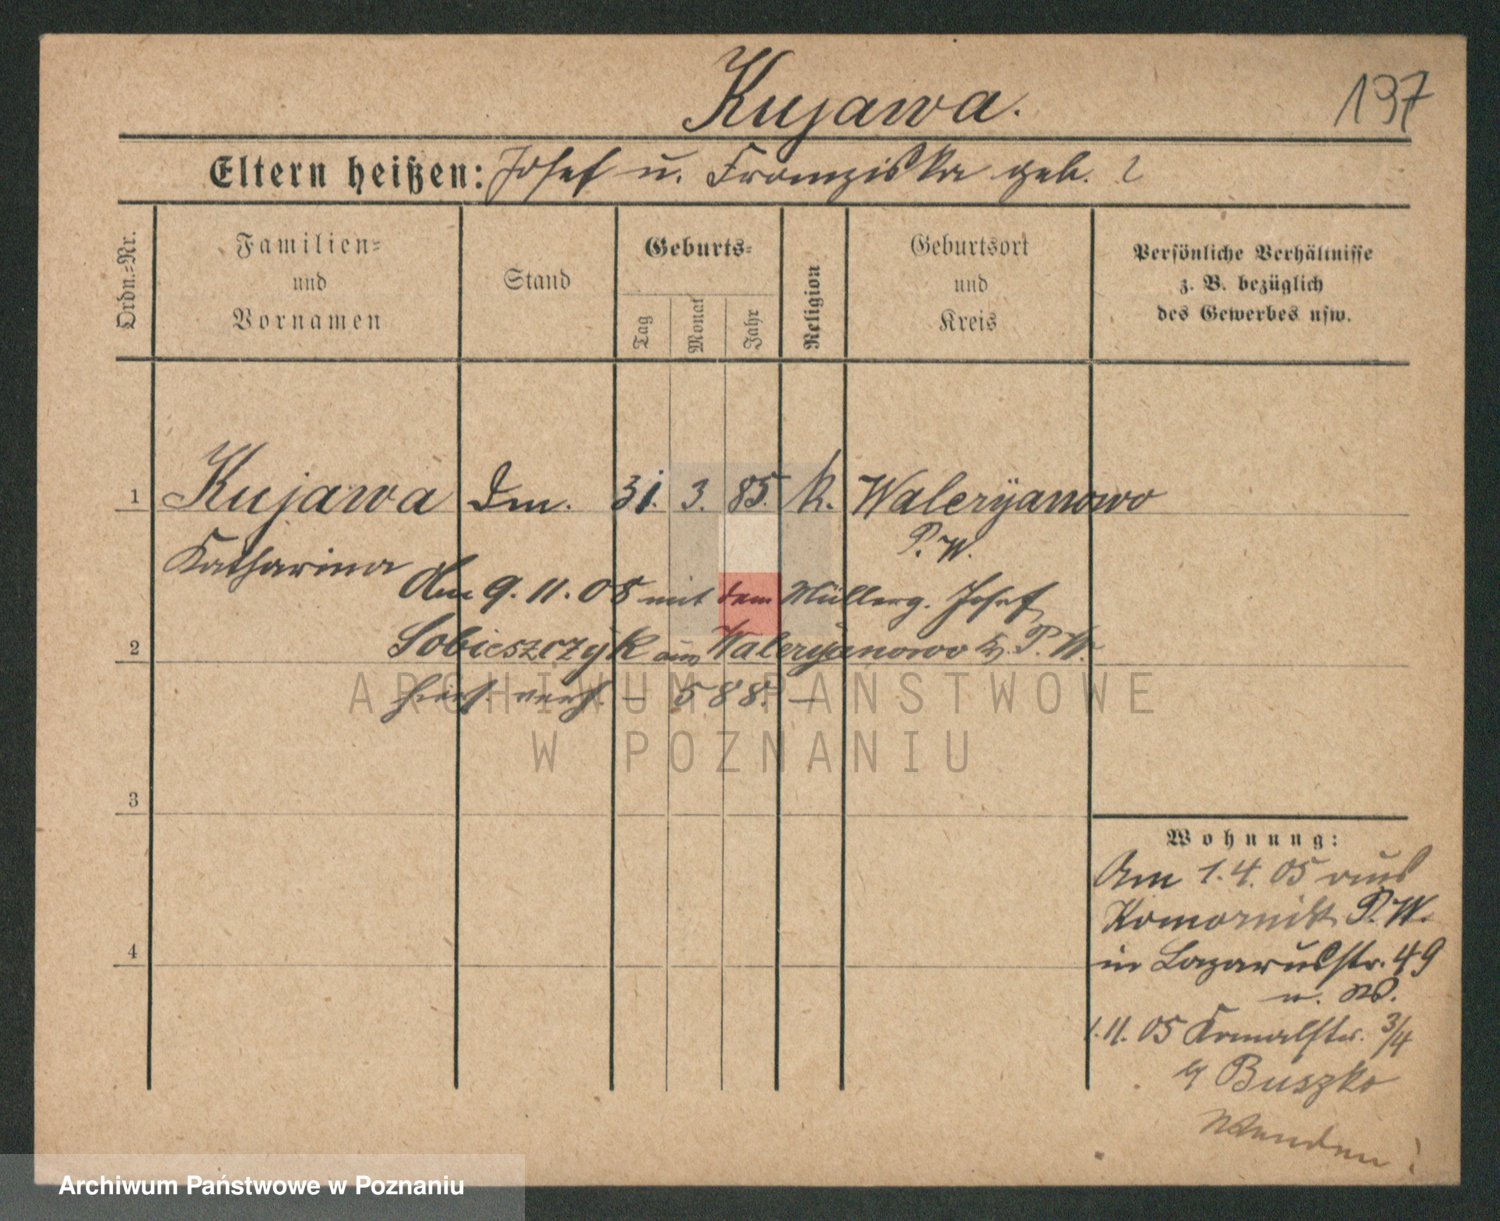 Kujawa.
197
Eltern heißen: Josef u. Franziska geb. ?
Ordn.=Nr.
Familien= und Vornamen
Stand
Geburts=
Tag
Monat
Jahr
Religion
Geburtsort und Kreis
Persönliche Verhältnisse
z. B. bezüglich
des Gewerbes usw.
1 Kujawa Dm. 31. 3. 85. k. Waleryanowo
Katharina P. W.
Am 9. 11. 08 mit dem Müllerg. Josef
2 Sobieszczyk aus Waleryanowo P. W.
verh. – 588. –
3
4
Wohnung:
Am 1. 4. 05 aus
Komornik P. W.
in Lazarusstr. 49
1. 11. 05 Kanalstr. 3/4
Buszko
Wenden!
ARCHIWUM PAŃSTWOWE
W POZNANIU
Archiwum Państwowe w Poznaniu